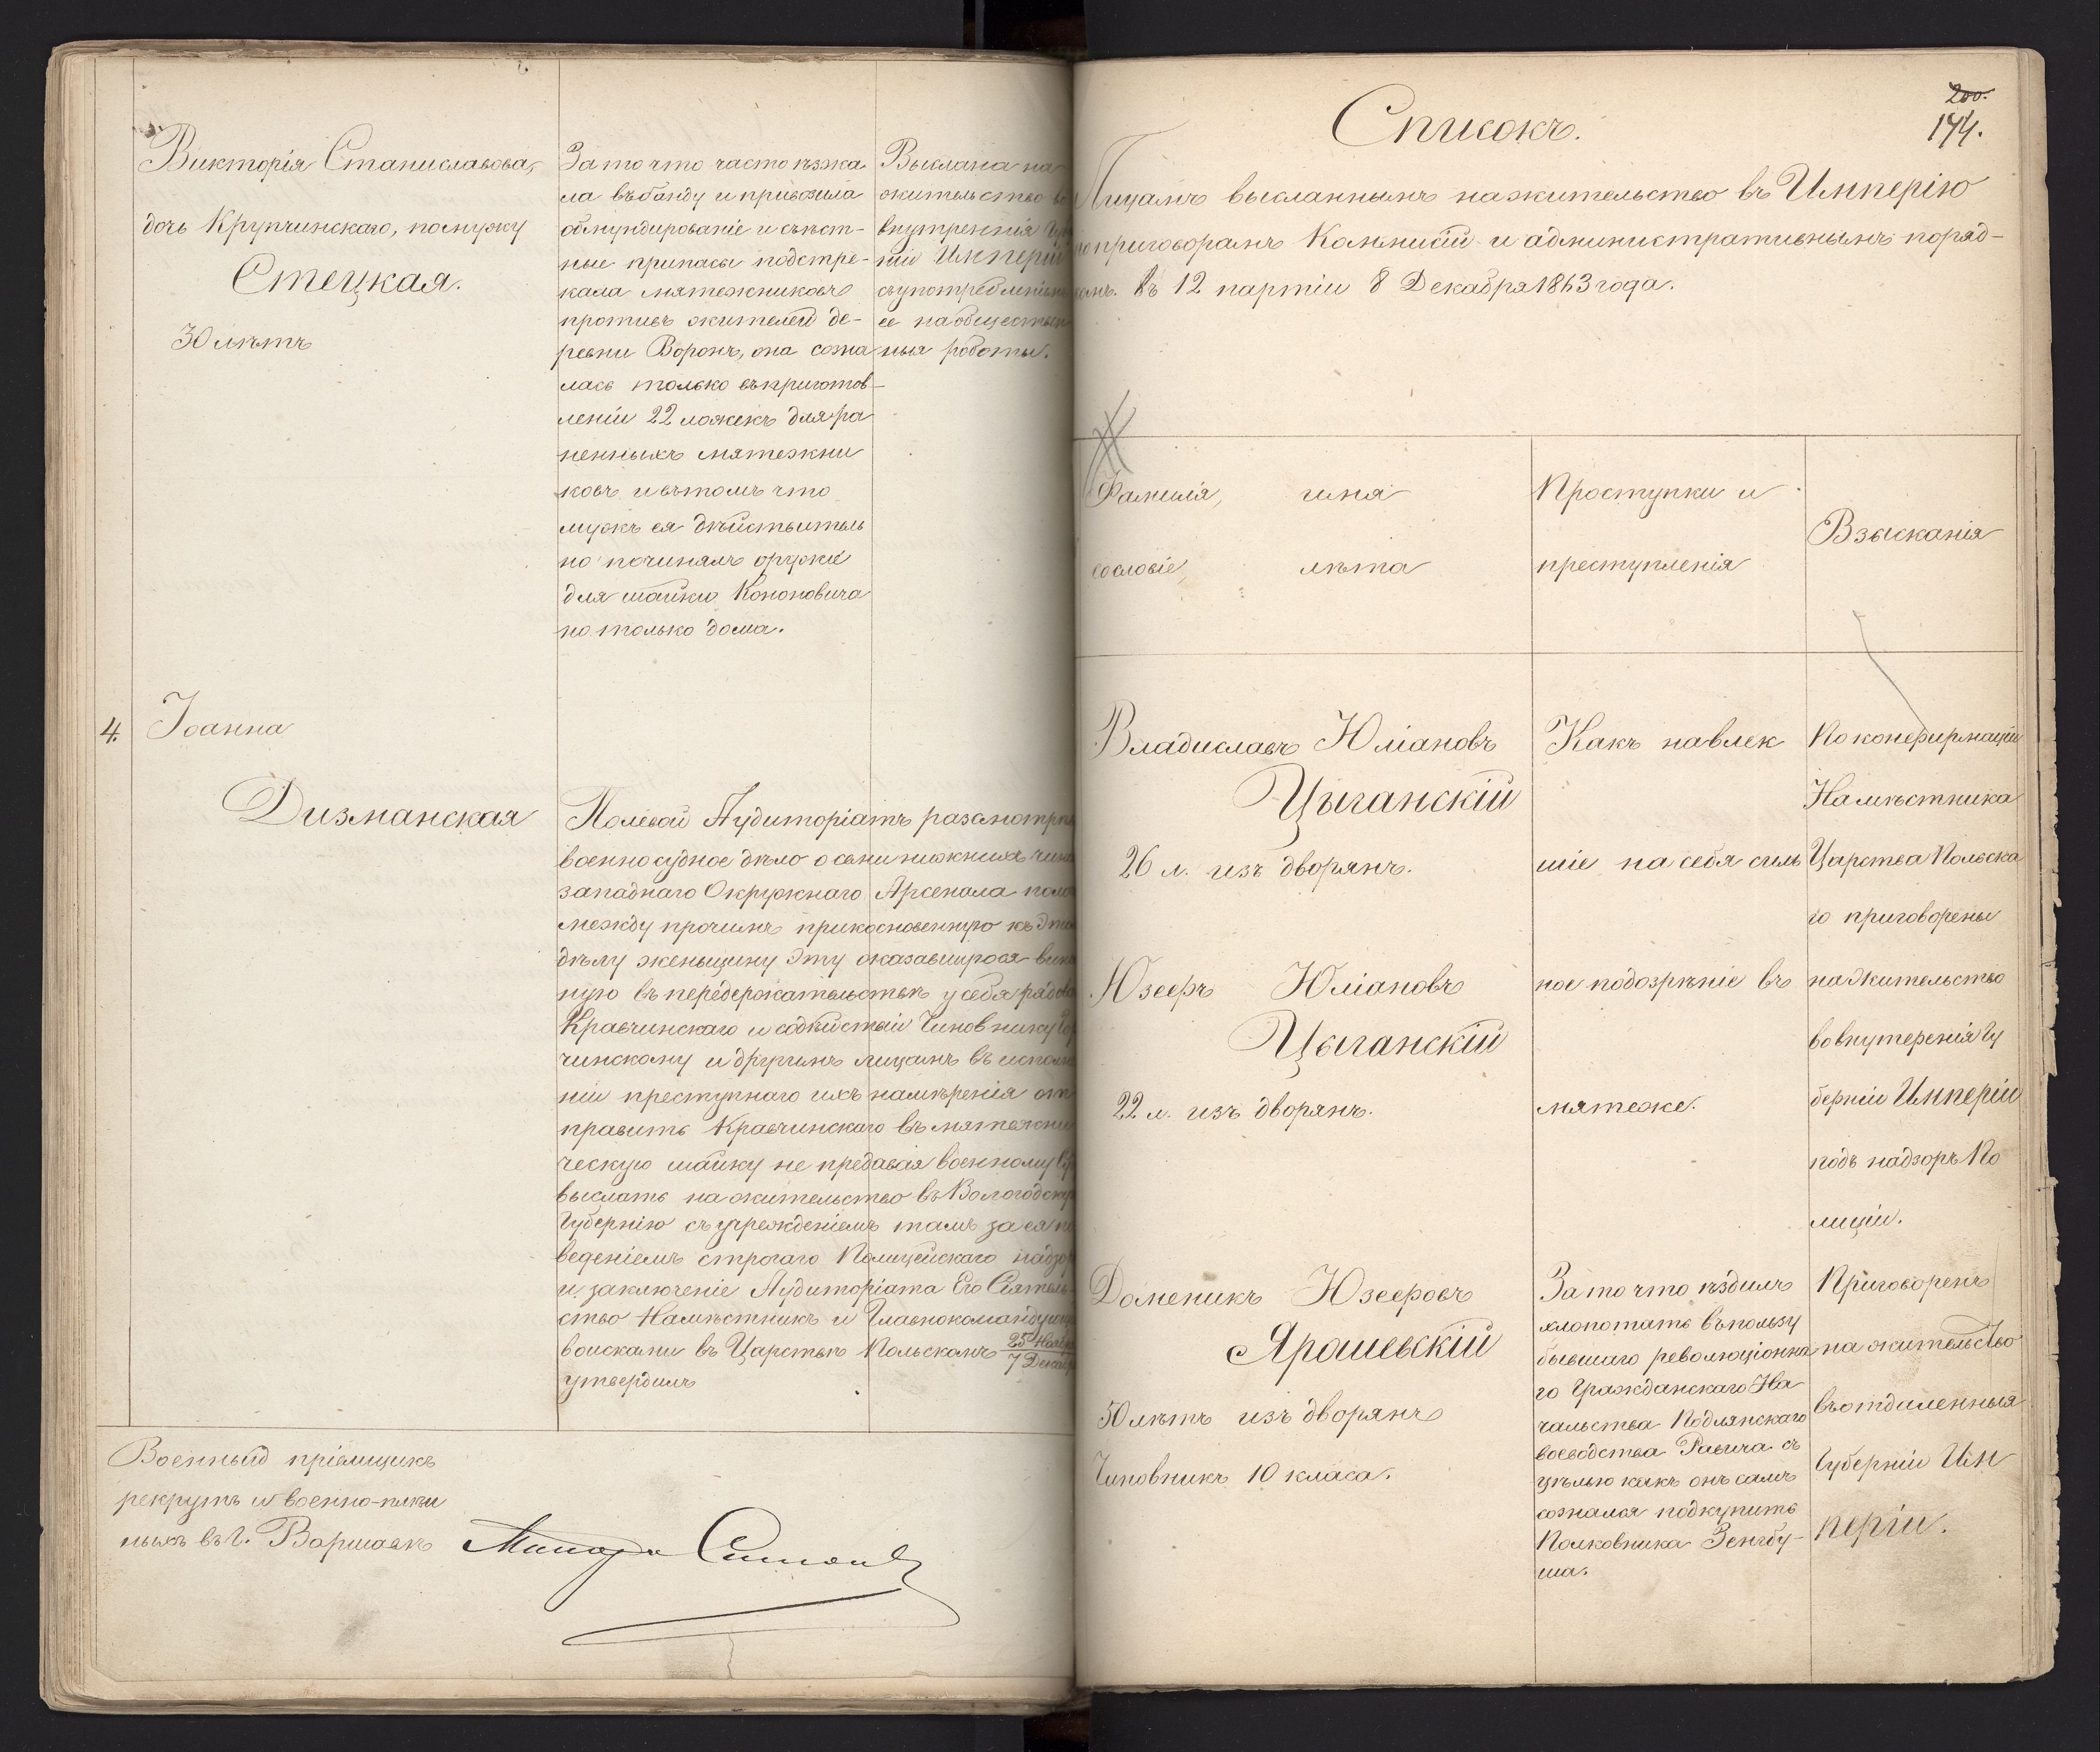 Викторія Станиславова,
дочь Крупчинскаго, по мужу
Стецкая.
30 лѣтъ
За то что часто ѣзжа
ла въ банду и привозила
обмундированіе и съѣст-
ные припасы подстре-
кала мятежниковъ
противъ жителей де-
ревни Воронъ, она созна
лась только въ приготов-
леніи 22 ложекъ для ра
ненныхъ мятежни
ковъ и въ томъ что
мужъ ея дѣйствитель
но починялъ оружіе
для шайки Кононовича
но только дома.
Выслана на
жительство во
внутреннія Губер
ніи Имперіи
съ употребленіемъ
ее на обществен
ныя роботы.
4. Іоанна
Дизманская
Полевой Аудиторіатъ разсмотрѣвъ
военносудное дѣло о семи нижнихъ чинахъ
западнаго Окружнаго Арсенала
между прочимъ прикосновенную къ
дѣлу женьщину эту оказавшуюся винов
ную въ передержательствѣ у себя рядоваго
Кравчинскаго и содѣйствіи Чиновнику
чинскому и другимъ лицамъ въ исполне
ніи преступнаго ихъ намѣренія от
править Кравчинскаго въ мятежни
ческую шайку не предавая военному суду
выслать на жительство въ Вологодскую
Губернію съ учрежденіемъ тамъ за ея по
веденіемъ строгаго Полицейскаго надзора
и заключеніе Аудиторіата Его Сіятель-
ство Намѣстникъ и Главнокомандующій
войсками въ Царствѣ Польскомъ 25 Ноября / 7 Декабря
утвердилъ
Военный пріемщикъ
рекрутъ и военно-плѣн
ныхъ въ г. Варшавѣ
200.
174.
Списокъ.
Лицамъ высланнымъ на жительство въ Имперію
по приговорамъ Коммисій и административнымъ поряд-
комъ. въ 12 партіи 8 Декабря 1863 года.
Фамилія, имя
сословіе, лѣта
Проступки и
преступленія
Взысканія
Владиславъ Юліановъ
Цыганскій
26 л. изъ дворянъ.
Юзефъ Юліановъ
Цыганскій
22 л. изъ дворянъ.
Какъ навлек
шіе на себя силь
ное подозрѣніе въ
мятеже.
По конфирмаціи
Намѣстника
Царства Польска
го приговорены
на жительство
во внутеренія Гу
берніи Имперіи
подъ надзоръ По
лиціи.
Доменикъ Юзефовъ
Ярошевскій
50 лѣтъ изъ дворянъ
Чиновникъ 10 класа.
За то что ѣздилъ
хлопотать въ пользу
бывшаго революціонна
го Гражданскаго На
чальства Подлянскаго
воеводства Равича съ
цѣлью какъ онъ самъ
сознался подкупить
Полковника Зенгбу-
ша.
Приговоренъ
на жительство
въ отдаленныя
Губерніи Им
періи.